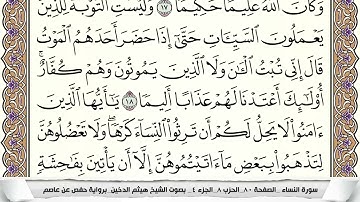 وَكَانَ ٱللَّهُ عَلِيمًا حَكِيمًا ١٧ وَلَيْسَتِ ٱلتَّوْبَةُ لِلَّذِينَ
يَعْمَلُونَ ٱلسَّيِّـَٔاتِ حَتَّىٰٓ إِذَا حَضَرَ أَحَدَهُمُ ٱلْمَوْتُ
قَالَ إِنِّى تُبْتُ ٱلْـَٰٔنَ وَلَا ٱلَّذِينَ يَمُوتُونَ وَهُمْ كُفَّارٌ ۚ
أُو۟لَـٰٓئِكَ أَعْتَدْنَا لَهُمْ عَذَابًا أَلِيمًا ١٨ يَـٰٓأَيُّهَا ٱلَّذِينَ
ءَامَنُوا۟ لَا يَحِلُّ لَكُمْ أَن تَرِثُوا۟ ٱلنِّسَآءَ كَرْهًا ۖ وَلَا تَعْضُلُوهُنَّ
لِتَذْهَبُوا۟ بِبَعْضِ مَآ ءَاتَيْتُمُوهُنَّ إِلَّآ أَن يَأْتِينَ بِفَـٰحِشَةٍ
سورة النساء _ الصفحة ٨٠_ الحزب ٨_ الجزء ٤ _ بصوت الشيخ هيثم الدخين_ برواية حفص عن عاصم